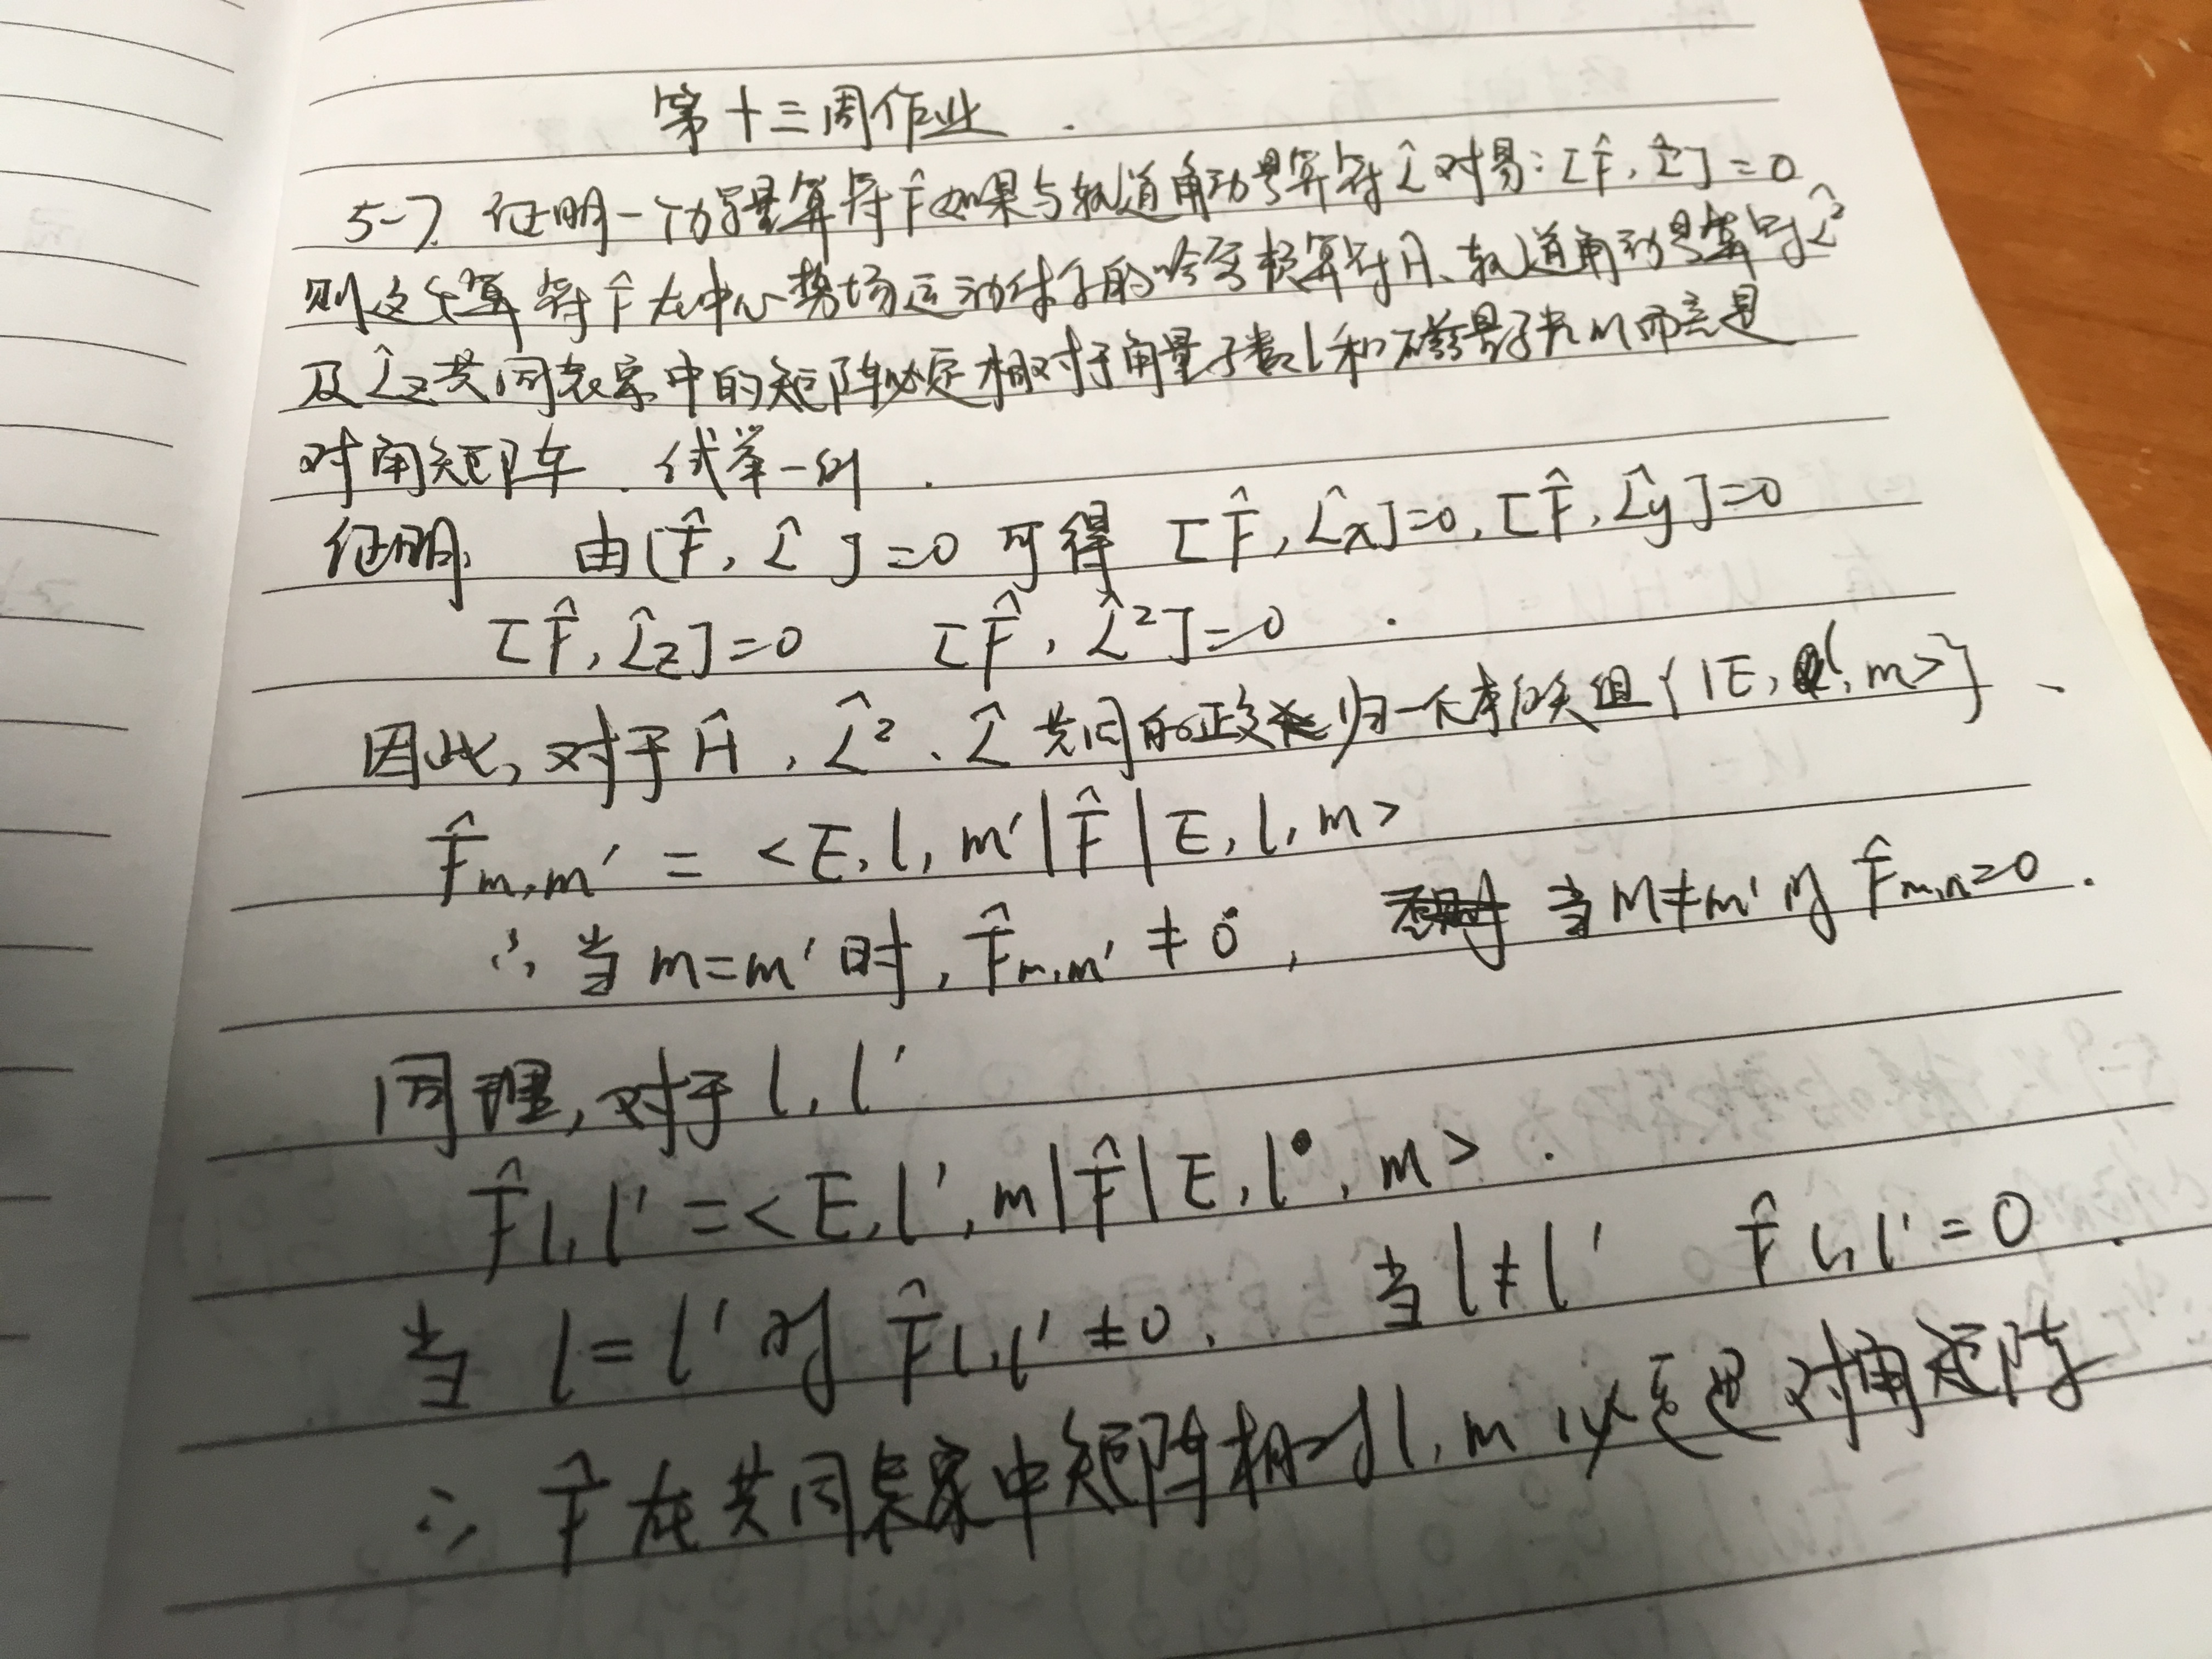 第十三周作业.
5-7. 证明一个力学量算符F̂如果与轨道角动量算符L̂对易:[F̂, L̂]=0
则这个算符F̂在中心势场运动体系的哈密顿算符Ĥ、轨道角动量算符L̂²
及L̂z共同表象中的矩阵必定相对于角量子数l和磁量子数m而言是
对角矩阵. 试举一例.
证明: 由[F̂, L̂]=0 可得 [F̂, L̂x]=0, [F̂, L̂y]=0
[F̂, L̂z]=0 [F̂, L̂²]=0.
因此, 对于Ĥ, L̂²、L̂共同的正交归一化本征矢组{|E, l, m>}、
F̂m,m' = <E, l, m'|F̂|E, l, m>
∴ 当m=m'时, F̂m,m' ≠ 0, 当m≠m'时 F̂m,n=0.
同理, 对于l, l'
F̂l,l' = <E, l', m|F̂|E, l, m>.
当 l=l'时 F̂l,l' ≠0. 当l≠l' F̂l,l'=0.
∴ F̂在共同表象中矩阵相对l, m 必定是对角矩阵